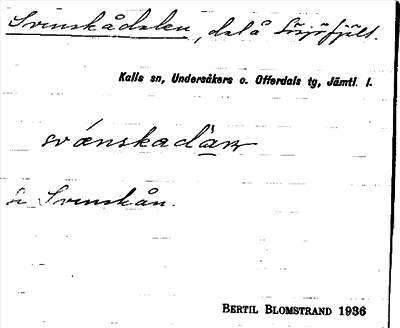 Svenskådalen, dal å Sösjöfjäll.
Kalls sn, Undersåkers o. Offerdals tg, Jämtl. l.
svænskadäɳ
se Svenskån.
BERTIL BLOMSTRAND 1936